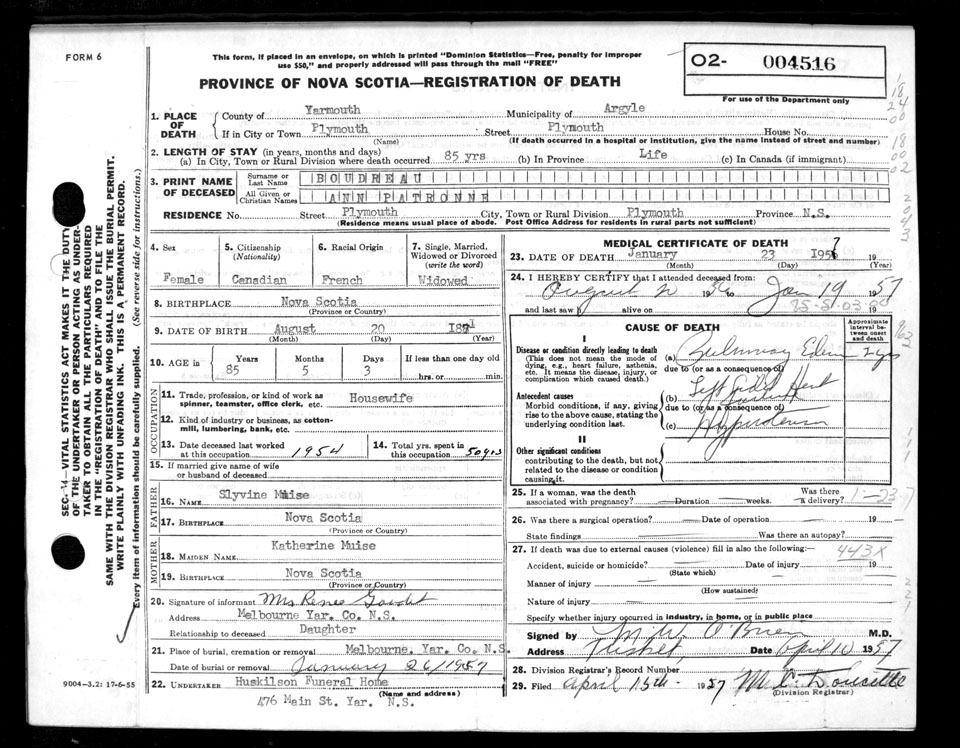 FORM 6
This form, if placed in an envelope, on which is printed "Dominion Statistics—Free, penalty for improper
use $50," and properly addressed will pass through the mail "FREE"
PROVINCE OF NOVA SCOTIA—REGISTRATION OF DEATH
O2- 004516
For use of the Department only
1. PLACE OF DEATH
County of Yarmouth Municipality of Argyle
If in City or Town Plymouth Street Plymouth House No.
(Name) (If death occurred in a hospital or institution, give the name instead of street and number)
2. LENGTH OF STAY (in years, months and days)
(a) In City, Town or Rural Division where death occurred 85 yrs (b) In Province Life (c) In Canada (if immigrant)
3. PRINT NAME OF DECEASED
Surname or Last Name BOUDREAU
All Given or Christian Names ANN PATRONNE
RESIDENCE No. Street Plymouth City, Town or Rural Division Plymouth Province N.S.
(Residence means usual place of abode. Post Office Address for residents in rural parts not sufficient)
4. Sex 5. Citizenship (Nationality) 6. Racial Origin 7. Single, Married, Widowed or Divorced (write the word)
Female Canadian French Widowed
8. BIRTHPLACE Nova Scotia
(Province or Country)
9. DATE OF BIRTH August 20 1871
(Month) (Day) (Year)
10. AGE in Years Months Days If less than one day old
85 5 3 hrs. or min.
OCCUPATION
11. Trade, profession, or kind of work as spinner, teamster, office clerk, etc. Housewife
12. Kind of industry or business, as cotton-mill, lumbering, bank, etc.
13. Date deceased last worked at this occupation 1954 14. Total yrs. spent in this occupation 50 yrs
15. If married give name of wife or husband of deceased
FATHER
16. NAME Slyvine Muise
17. BIRTHPLACE Nova Scotia
(Province or Country)
MOTHER
18. MAIDEN NAME Katherine Muise
19. BIRTHPLACE Nova Scotia
(Province or Country)
20. Signature of informant Mrs Renee Goudet
Address Melbourne Yar. Co. N.S.
Relationship to deceased Daughter
21. Place of burial, cremation or removal Melbourne, Yar. Co. N.S.
Date of burial or removal January 26/1957
22. UNDERTAKER Huskilson Funeral Home
(Name and address)
476 Main St. Yar. N.S.
9004—3.2: 17-6-55
MEDICAL CERTIFICATE OF DEATH
23. DATE OF DEATH January 23 1957 19
(Month) (Day) (Year)
24. I HEREBY CERTIFY that I attended deceased from:
August 2 1956 to Jan 19 1957
and last saw h alive on 19
CAUSE OF DEATH
Approximate interval between onset and death
I
Disease or condition directly leading to death
(This does not mean the mode of dying, e.g., heart failure, asthenia, etc. It means the disease, injury, or complication which caused death.)
(a)
due to (or as a consequence of)
Antecedent causes
Morbid conditions, if any, giving rise to the above cause, stating the underlying condition last.
(b) Left Sided Heart Failure
due to (or as a consequence of)
(c) Hypertension
II
Other significant conditions
contributing to the death, but not related to the disease or condition causing it.
25. If a woman, was the death associated with pregnancy? Duration weeks. Was there a delivery?
1-23-7
26. Was there a surgical operation? Date of operation 19
State findings Was there an autopsy?
27. If death was due to external causes (violence) fill in also the following:— 443X
Accident, suicide or homicide? Date of injury 19
(State which)
Manner of injury
(How sustained)
Nature of injury
Specify whether injury occurred in industry, in home, or in public place
Signed by O'Brien M.D.
Address Date April 10 1957
28. Division Registrar's Record Number
29. Filed April 15th 1957 M C Doucette
(Division Registrar)
SEC. 14—VITAL STATISTICS ACT MAKES IT THE DUTY
OF THE UNDERTAKER OR PERSON ACTING AS UNDER-
TAKER TO OBTAIN ALL THE PARTICULARS REQUIRED
IN THE "REGISTRATION OF DEATH" AND TO FILE THE
SAME WITH THE DIVISION REGISTRAR WHO SHALL ISSUE THE BURIAL PERMIT.
WRITE PLAINLY WITH UNFADING INK. THIS IS A PERMANENT RECORD.
Every item of information should be carefully supplied. (See reverse side for instructions.)